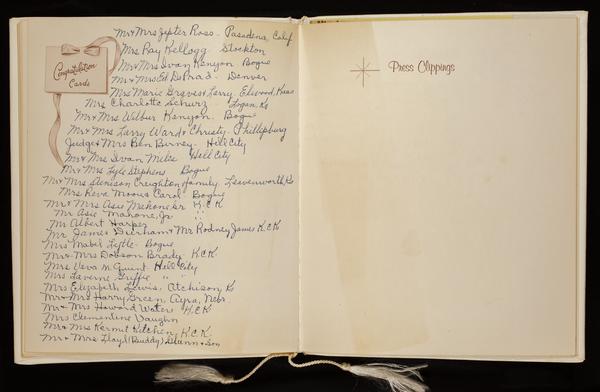 Congratulation
Cards
Mr & Mrs Jester Ross - Pasadena, Calif
Mrs Ray Kellogg - Stockton
Mr & Mrs Ivan Kenyon Bogue
Mr & Mrs Ed DePrad - Denver
Mrs Marie Graves & Larry - Elwood, Kans
Mrs Charlotte Schurz - Logan, Ks
Mr & Mrs Wilbur Kenyon. Bogue
Mr & Mrs Larry Ward & Christy - Phillipsburg
Judge & Mrs Ben Burney - Hill City
Mr & Mrs Ivan Hill City
Mr & Mrs Lyle Stephens Bogue
Mr & Mrs Denison Creighton & family. Leavenworth, Ks
Mrs Reva Moore & Carol Bogue
Mr & Mrs Asie Mahone Sr K.C.K
Mr Asie Mahone, Jr " "
Mr Albert Harper
Mr James Durham & Mr Rodney James K.C.K
Mrs Mabel Lytle - Bogue
Mr & Mrs Dobson Brady - K.C.K.
Mrs Veva M Quint - Hill City
Mrs Laverne Griffie " "
Mrs Elizabeth Lewis, Atchison, Ks
Mr & Mrs Harry Green, Nebr.
Mr & Mrs Howard Waters K.C.K
Mrs Clementine Vaughn
Mr & Mrs Kermit Kitchen, K.C.K.
Mr & Mrs Lloyd (Buddy) Dunn & Son
Press Clippings